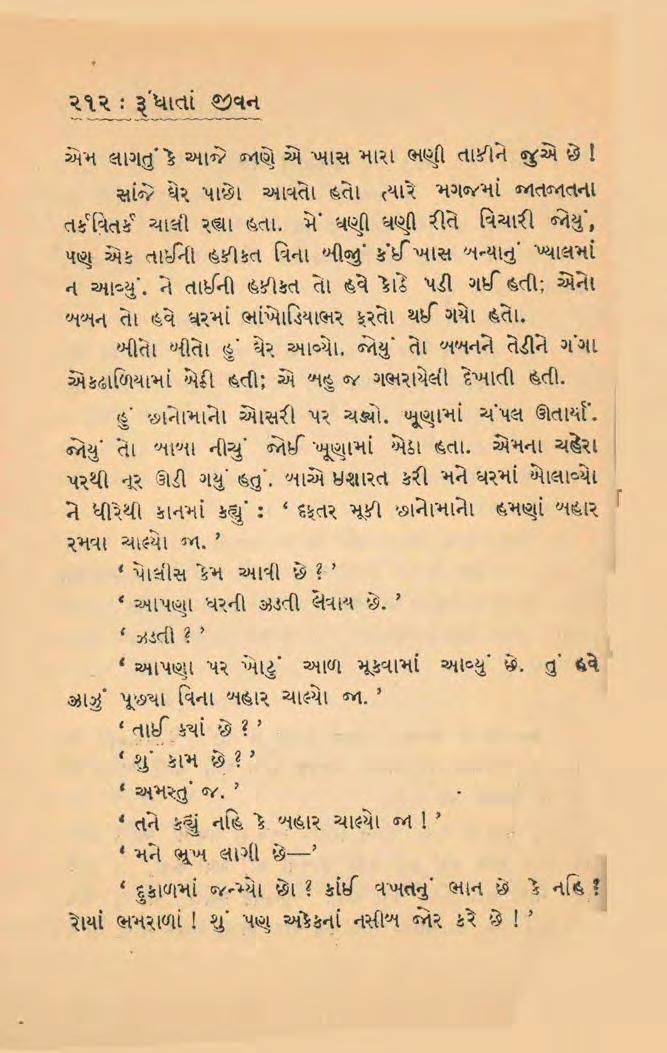 ૨૧૨ : રૂંધાતાં જીવન
એમ લાગતું કે આજે જાણે એ ખાસ મારા ભણી તાકીને જુએ છે !
સાંજે ઘેર પાછો આવતો હતો ત્યારે મગજમાં જાતજાતના
તર્કવિતર્ક ચાલી રહ્યા હતા. મેં ઘણી ઘણી રીતે વિચારી જોયું,
પણ એક તાઈની હકીકત વિના બીજું કંઈ ખાસ બન્યાનું ખ્યાલમાં
ન આવ્યું. ને તાઈની હકીકત તો હવે કોઠે પડી ગઈ હતી; એનો
બબન તો હવે ઘરમાં ભાંખોડિયાભર ફરતો થઈ ગયો હતો.
બીતો બીતો હું ઘેર આવ્યો. જોયું તો બબનને તેડીને ગંગા
એકઢાળિયામાં બેઠી હતી; એ બહુ જ ગભરાયેલી દેખાતી હતી.
હું છાનોમાનો ઓસરી પર ચઢ્યો. ખૂણામાં ચંપલ ઊતાર્યાં.
જોયું તો બાબા નીચું જોઈ ખૂણામાં બેઠા હતા. એમના ચહેરા
પરથી નૂર ઊડી ગયું હતું. બાએ ઇશારત કરી મને ઘરમાં બોલાવ્યો
ને ધીરેથી કાનમાં કહ્યું : ‘ દફતર મૂકી છાનોમાનો હમણાં બહાર
રમવા ચાલ્યો જા. ’
‘ પોલીસ કેમ આવી છે ? ’
‘ આપણા ઘરની ઝડતી લેવાય છે. ’
‘ ઝડતી ? ’
‘ આપણા પર ખોટું આળ મૂકવામાં આવ્યું છે. તું હવે
ઝાઝું પૂછ્યા વિના બહાર ચાલ્યો જા. ’
‘ તાઈ ક્યાં છે ? ’
‘ શું કામ છે ? ’
‘ અમસ્તું જ. ’
‘ તને કહ્યું નહિ કે બહાર ચાલ્યો જા ! ’
‘ મને ભૂખ લાગી છે—’
‘ દુકાળમાં જન્મ્યો છો ? કાંઈ વખતનું ભાન છે કે નહિ ?
રોયાં ભમરાળાં ! શું પણ અકેકનાં નસીબ જોર કરે છે ! ’